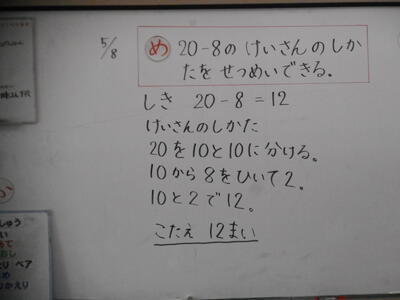 5/8
め 20-8の けいさんのしか
たを せつめいできる。
しき 20-8=12
けいさんのしかた
20を10と10に分ける。
10から8をひいて2。
10と2で12。
こたえ 12まい